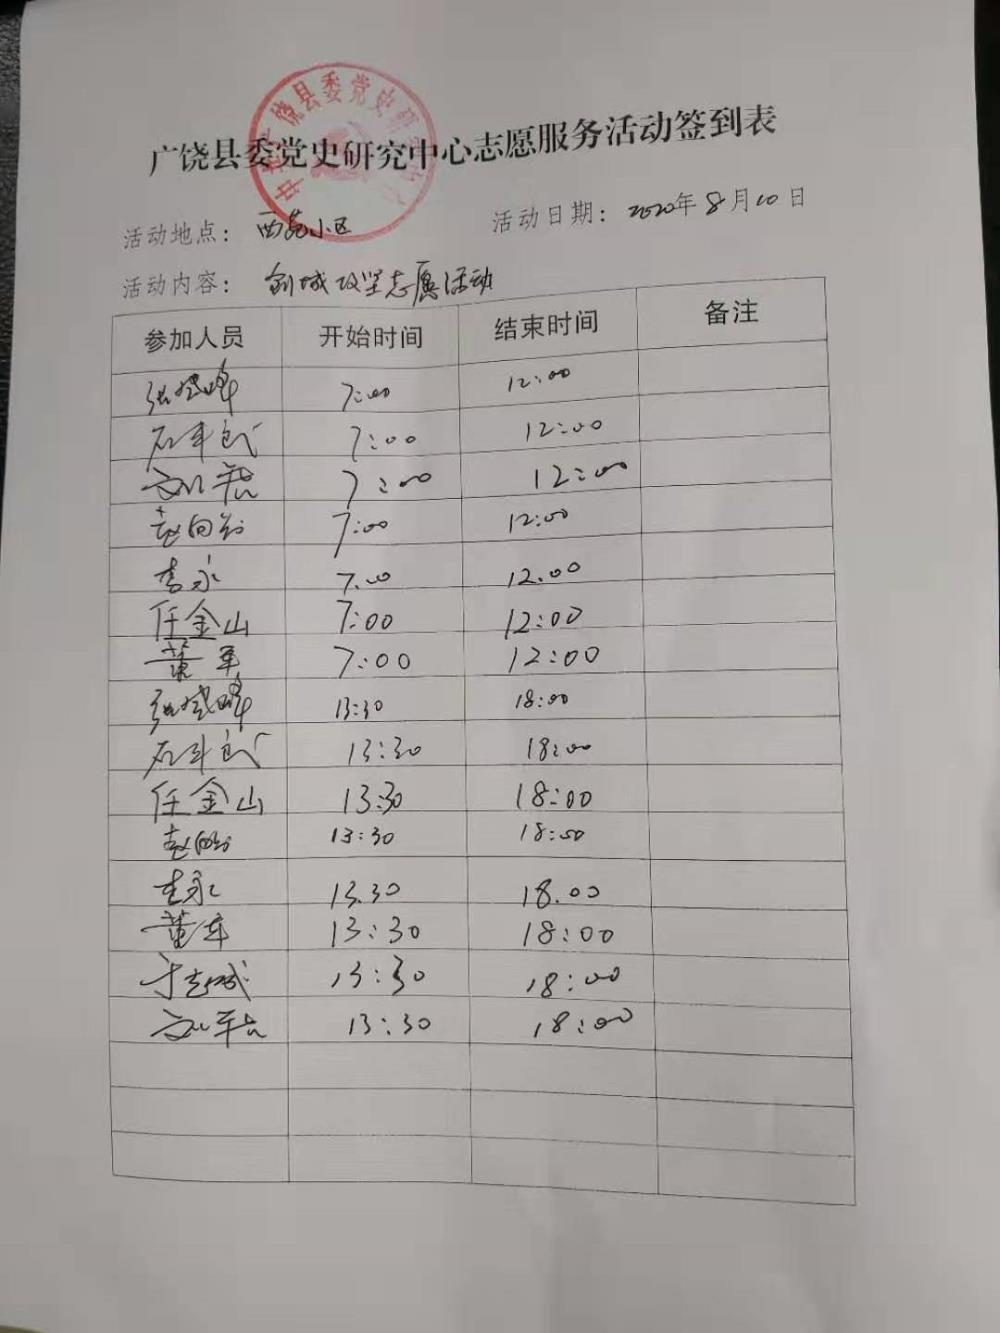 广饶县委党史研究中心志愿服务活动签到表
活动地点： 西苑小区 活动日期： 2020年8月10日
活动内容： 创城攻坚志愿活动
参加人员 开始时间 结束时间 备注
7:00 12:00
7:00 12:00
7:00 12:00
7:00 12:00
李永 7.00 12.00
任金山 7:00 12:00
董军 7:00 12:00
13:30 18:00
13:30 18:00
任金山 13:30 18:00
13:30 18:00
李永 13.30 18.00
董军 13:30 18:00
13:30 18:00
13:30 18:00